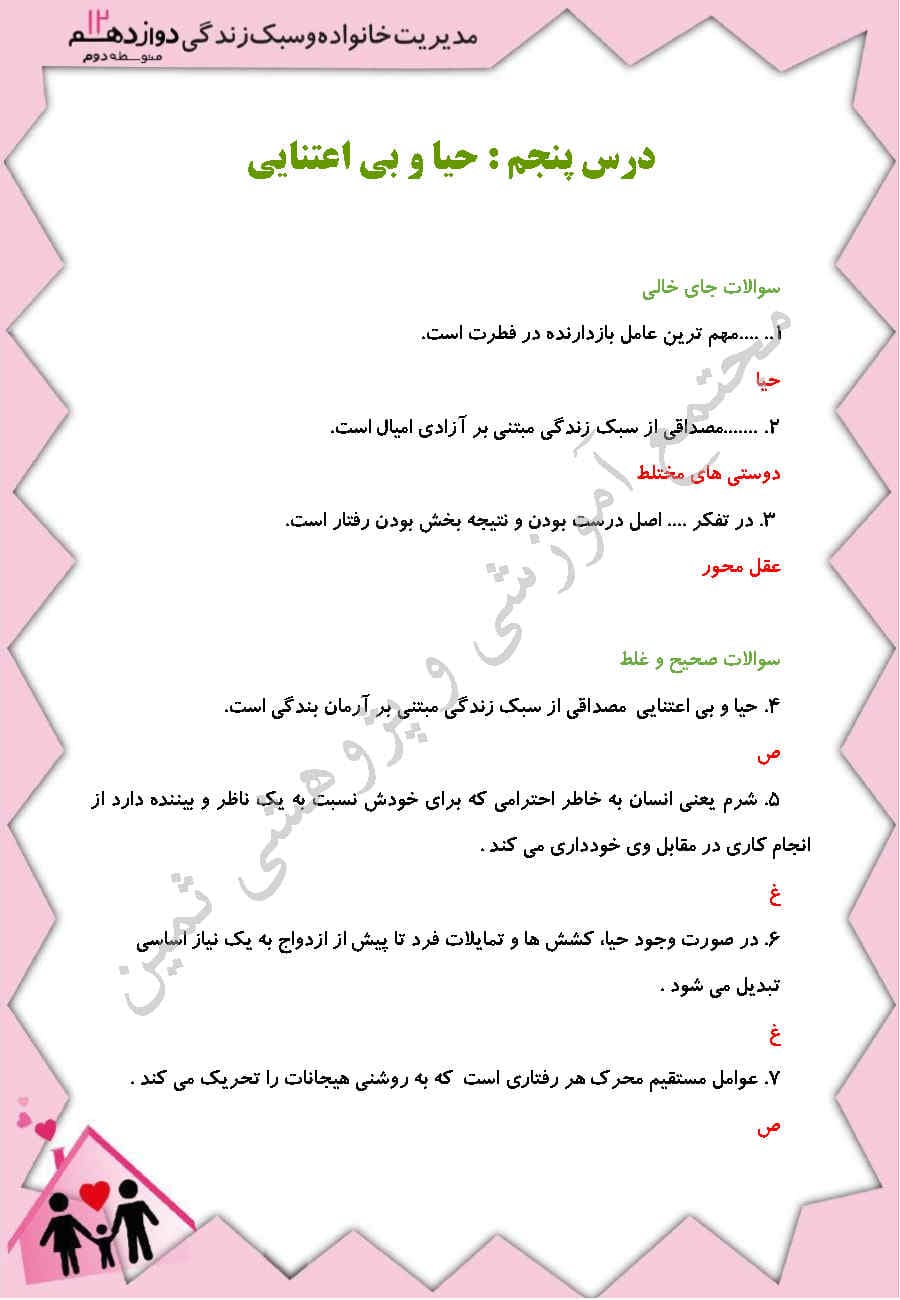 مدیریت خانواده و سبک زندگی دوازدهم ۱۲
متوسطه دوم
درس پنجم : حیا و بی اعتنایی
سوالات جای خالی
۱.. ....مهم ترین عامل بازدارنده در فطرت است.
حیا
۲. .......مصداقی از سبک زندگی مبتنی بر آزادی امیال است.
دوستی های مختلط
۳. در تفکر .... اصل درست بودن و نتیجه بخش بودن رفتار است.
عقل محور
سوالات صحیح و غلط
۴. حیا و بی اعتنایی مصداقی از سبک زندگی مبتنی بر آرمان بندگی است.
ص
۵. شرم یعنی انسان به خاطر احترامی که برای خودش نسبت به یک ناظر و بیننده دارد از
انجام کاری در مقابل وی خودداری می کند .
غ
۶. در صورت وجود حیا، کشش ها و تمایلات فرد تا پیش از ازدواج به یک نیاز اساسی
تبدیل می شود .
غ
۷. عوامل مستقیم محرک هر رفتاری است که به روشنی هیجانات را تحریک می کند .
ص
مجتمع آموزشی و پژوهشی ثمین